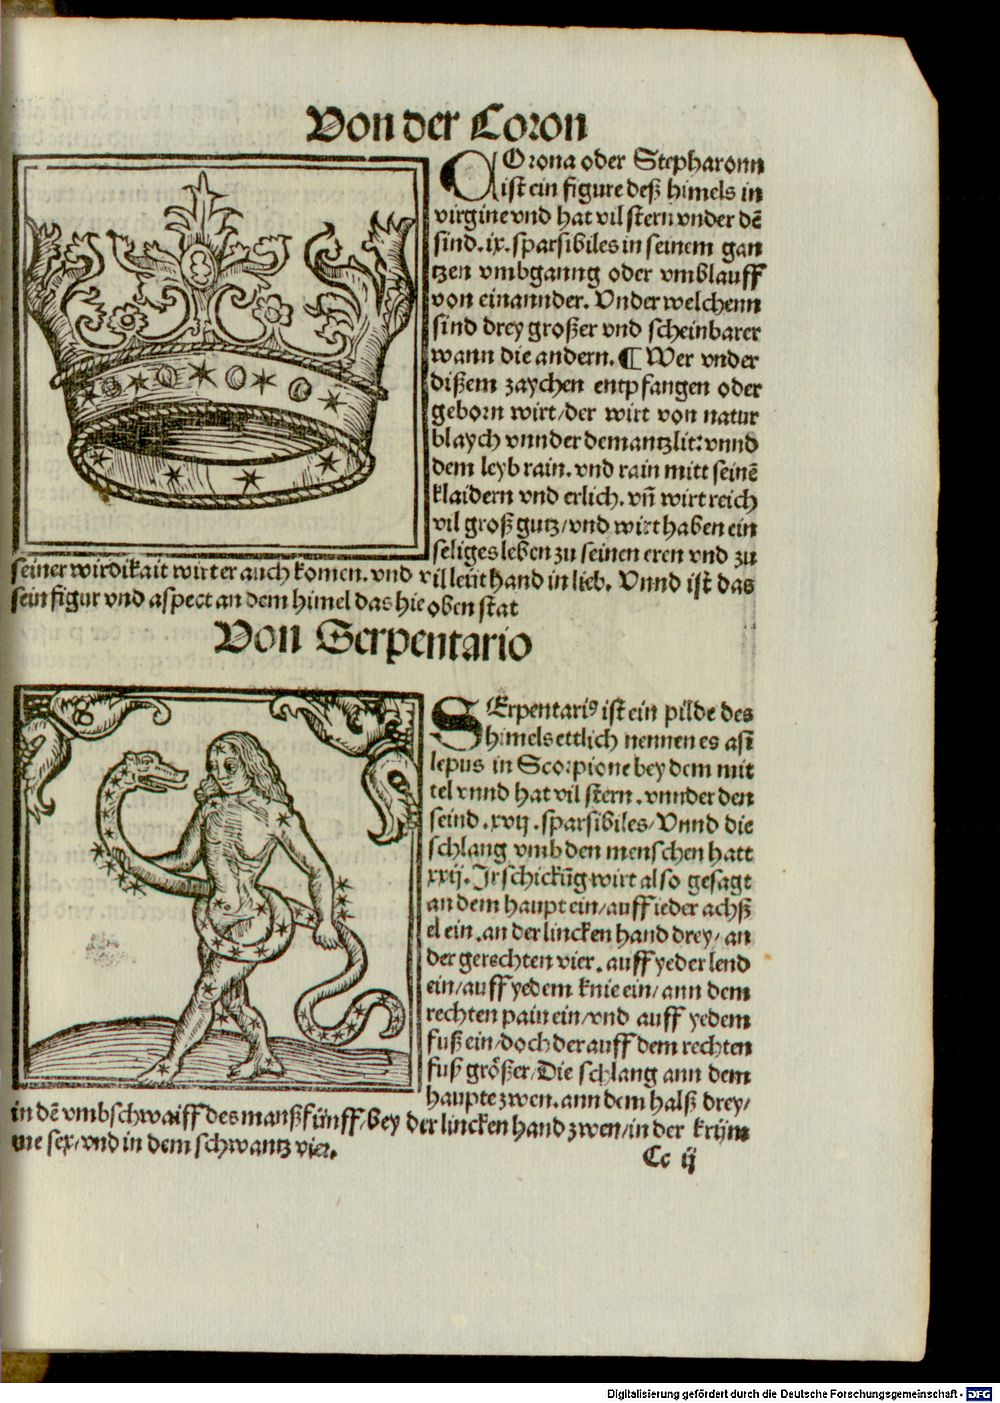 Von der Coron
COrona oder Stepharonn
ist ein figure deß himels in
virgine vnd hat vil stern vnder dē
sind .ix. sparsibiles in seinem gan
tzen vmbganng oder vmblauff
von einannder. Vnder welchenn
sind drey großer vnd scheinbarer
wann die andern. ¶ Wer vnder
dißem zaychen entpfangen oder
geborn wirt/der wirt von natur
blaych vnnder dem antzlit: vnnd
dem leyb rain. vnd rain mitt seinē
klaidern vnd erlich. vn̄ wirt reich
vil groß gutz/vnd wirt haben ein
seliges leben zu seinen eren vnd zu
seiner wirdikait wirt er auch komen. vnd vil leüt hand in lieb. Vnnd ist das
sein figur vnd aspect an dem himel das hie oben stat
Von Serpentario
SErpentariꝰ ist ein pilde des
himels ettlich nennen es ast
lepus in Scorpione bey dem mit
tel vnnd hat vil stern. vnnder den
seind .xvij. sparsibiles/Vnnd die
schlang vmb den menschen hatt
xxij. Ir schickūg wirt also gesagt
an dem haupt ein/auff ieder achß
el ein. an der lincken hand drey/ an
der gerechten vier. auff yeder lend
ein/auff yedem knie ein/ ann dem
rechten pain ein/vnd auff yedem
fuß ein/doch der auff dem rechten
fuß größer/Die schlang ann dem
haupte zwen. ann dem halß drey/
in dē vmbschwaiff des manß fünff/bey der lincken hand zwen/in der krüm
me sex/vnd in dem schwantz vier.
Cc ij
Digitalisierung gefördert durch die Deutsche Forschungsgemeinschaft - DFG